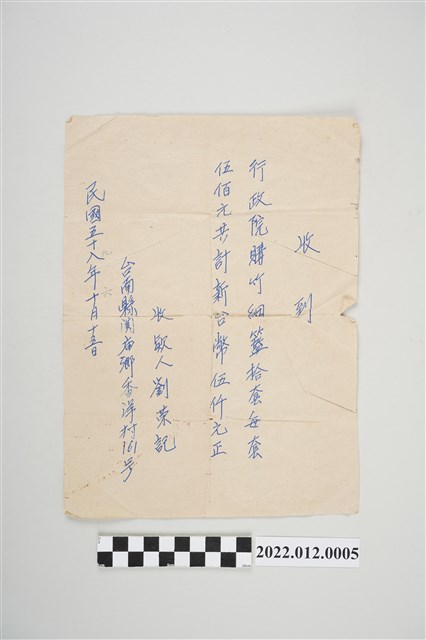 收到
行政院購竹細籃拾套每套
伍佰元共計新台幣伍仟元正
收款人劉榮記
台南縣関庙鄉香洋村161号
民國五十八年十月十三日
2022.012.0005